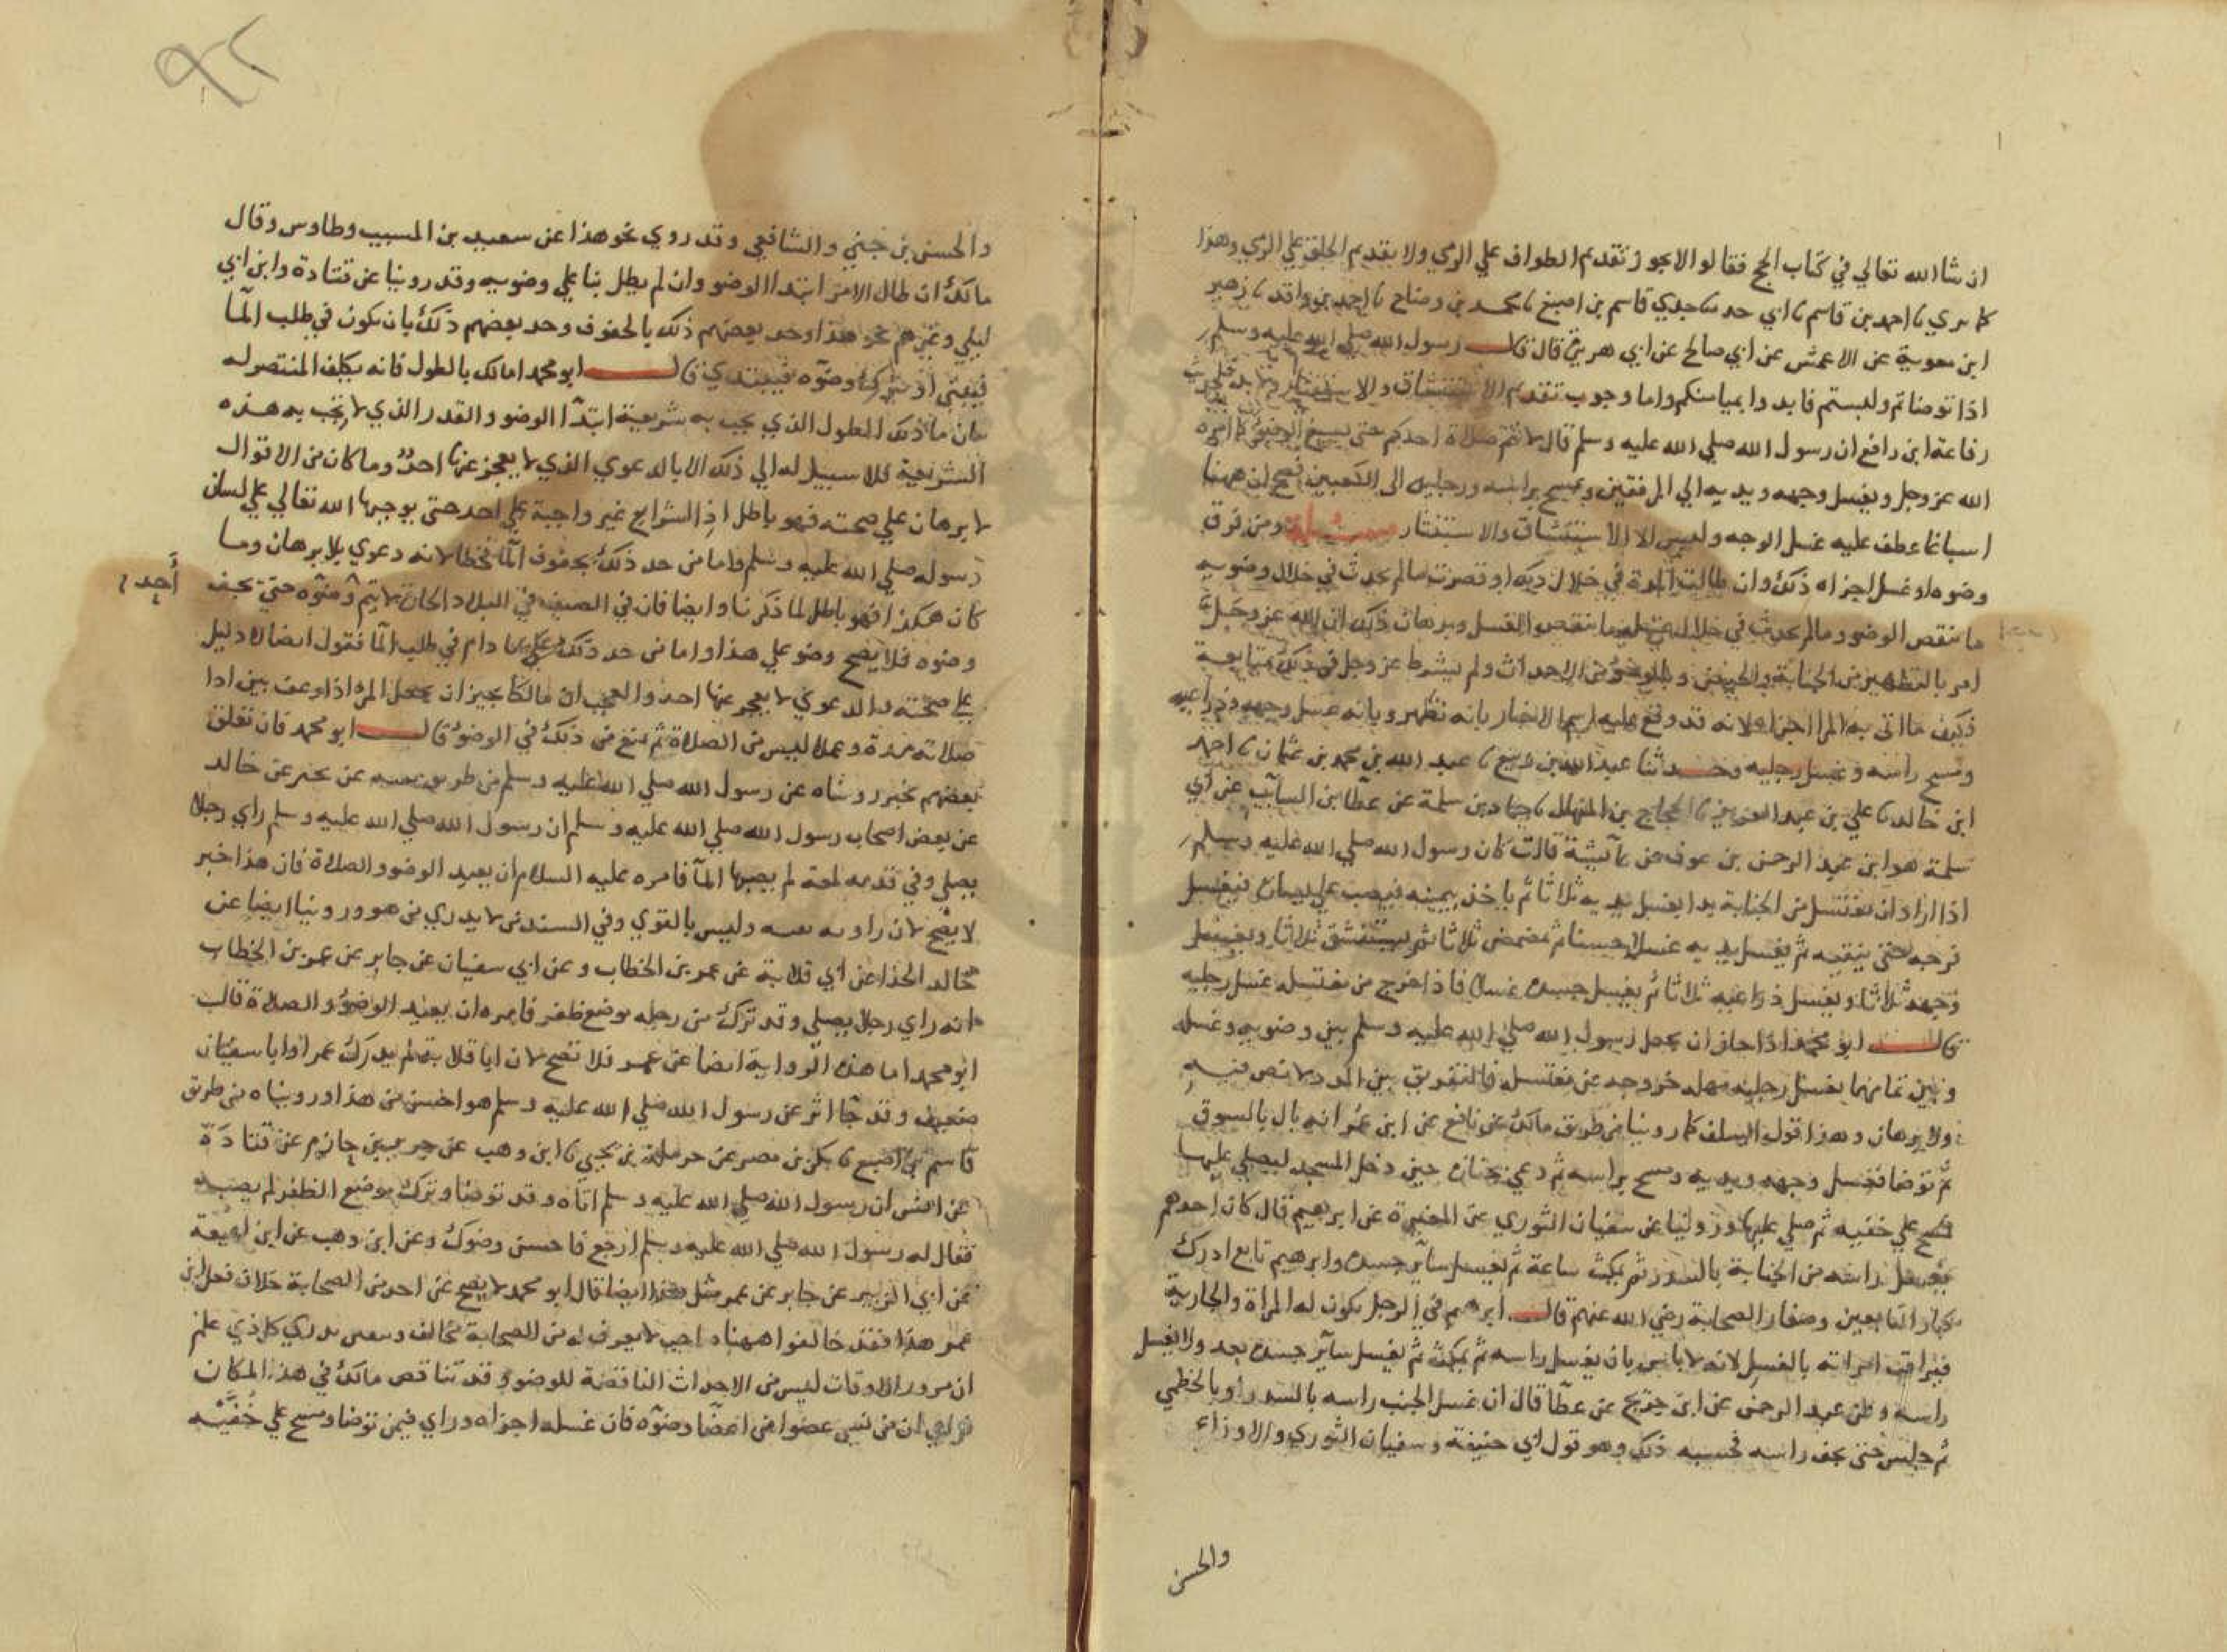 ان شا الله تعالي في كتاب الحج فقالوا لا يجوز تقديم الطواف علي الرمي ولا تقديم الحلق علي الرمي وهذا
كما تري نا احمد بن قاسم نا ابي حدثنا جدي قاسم بن اصبغ نا محمد بن وضاح نا احمد بن واقد نا زهير
ابن معوية عن الاعمش عن ابي صالح عن ابي هريرة قال قال رسول الله صلي الله عليه وسلم
اذا توضاتم ولبستم فابدوا بميامنكم واما وجوب تقديم الاستنشاق والاستنثار ولا بد فلحديث
رفاعة ابن رافع ان رسول الله صلي الله عليه وسلم قال لا تتم صلاة احدكم حتي يسبغ الوضو كما امره
الله عز وجل ويغسل وجهه ويديه الي المرفقين ويمسح براسه ورجليه الي الكعبين فصح ان ههنا
اسباغا عطف عليه غسل الوجه وليس الا الاستنشاق والاستنثار مسئلة ومن فرق
وضوه او غسل اجزاه ذلك وان طالت المدة في خلال ذلك او قصرت ما لم يحدث في خلال وضويه
ما ينقض الوضو وما لم يحدث في خلال غسله ما ينقض الغسل وبرهان ذلك ان الله عز وجل
امر بالتطهر من الجنابة والحيض وبالوضو من الاحداث ولم يشرط عز وجل في ذلك متابعة
فكيف ما اتي به المرا اجزاه ولانه قد وقع عليه اسم الاخبار بانه تطهر وبانه غسل وجهه وذراعيه
ومسح راسه وغسل رجليه وحدثنا عبد الله بن ربيع نا عبد الله بن محمد بن عثمان نا احمد
ابن خالد نا علي بن عبد العزيز نا الحجاج بن المنهال نا حماد بن سلمة عن عطا بن السايب عن ابي
سلمة هو ابن عبد الرحمن بن عوف عن عايشة قالت كان رسول الله صلي الله عليه وسلم
اذا اراد ان يغتسل من الجنابة بدا يغسل يديه ثلاثا ثم ياخذ بيمينه فيصب علي يساره فيغسل
فرجه حتي ينقيه ثم يغسل يديه غسلا حسنا ثم يمضمض ثلاثا ثم يستنشق ثلاثا ويغسل
وجهه ثلاثا ويغسل ذراعيه ثلاثا ثم يغسل جسده غسلا فاذا خرج من مغتسله غسل رجليه
قال ابو محمد اذا جاز ان يجعل رسول الله صلي الله عليه وسلم بين وضويه وغسله
وبين تمامهما بغسل رجليه مهلة خروجه عن مغتسله فالتفريق بين المدد لا نص فيه
ولا برهان وهذا قول السلف كما روينا من طريق مالك عن نافع عن ابن عمر انه بال بالسوق
ثم توضا فغسل وجهه ويديه ومسح براسه ثم دعي بجنازة حين دخل المسجد ليصلي عليها
فمسح علي خفيه ثم صلي عليها وروينا عن سفيان الثوري عن المغيرة عن ابرهيم قال كان احدهم
يغسل راسه من الجنابة بالسدر ثم يمكث ساعة ثم يغسل ساير جسده وابرهيم تابع ادرك
كبار التابعين وصغار الصحابة رضي الله عنهم قال ابرهيم في الرجل تكون له المراة والجارية
فيراقب امراته بالغسل لانه لا باس بان يغسل راسه ثم يمكث ثم يغسل ساير جسده بعد ولا يغسل
راسه وعن عبد الرحمن عن ابن جريج عن عطا قال ان غسل الجنب راسه بالسدر او بالخطمي
ثم جلس حتي يجف راسه فحسبه ذلك وهو قول ابي حنيفة وسفيان الثوري والاوزاعي
والحسن
٩٢
والحسن بن حيي والشافعي وقد روي نحو هذا عن سعيد بن المسيب وطاوس وقال
مالك ان طال الامر ابتدا الوضو وان لم يطل بنا علي وضويه وقد روينا عن قتادة وابن ابي
ليلي وغيرهم نحو هذا وحد بعضهم ذلك بالجفوف وحد بعضهم ذلك بان يكون في طلب الما
فيبني اذ يترك وضوه فيبتدي قال ابو محمد اما مالك بالطول فانه يكلف المنتصر له
بيان ما ذلك الطول الذي يجب به شريعة ابتدا الوضو والقدر الذي لا تجب به هذه
الشريعة فلا سبيل له الي ذلك الا بالدعوي الذي لا يعجز عنها احد وما كان من الاقوال
لا برهان علي صحته فهو باطل اذ الشرايع غير واجبة علي احد حتي يوجبها الله تعالي علي لسان
رسوله صلي الله عليه وسلم واما من حد ذلك بجفوف الما فخطا لانه دعوي بلا برهان وما
كان هكذا فهو باطل لما ذكرنا وايضا فان في الصيف في البلاد الحارة لا يتم وضوه حتي يجف
أحد
وضوه فلا يصح وضو علي هذا واما من حد ذلك علي ما دام في طلب الما فقول ايضا لا دليل
علي صحته والدعوي لا يعجز عنها احد والعجب ان مالكا يجيز ان يجعل المرا اذا رعف بين اداء
صلاته مدة وعملا ليس من الصلاة ثم يمنع من ذلك في الوضو قال ابو محمد فان تعلق
بعضهم بخبر رويناه عن رسول الله صلي الله عليه وسلم من طريق بقية عن بحير عن خالد
عن بعض اصحاب رسول الله صلي الله عليه وسلم ان رسول الله صلي الله عليه وسلم راي رجلا
يصلي وفي قدمه لمعة لم يصبها الما فامره عليه السلام ان يعيد الوضو والصلاة فان هذا خبر
لا يصح لان راويه بقية وليس بالقوي وفي السند من لا يدري من هو وروينا ايضا عن
خالد الحذا عن ابي قلابة عن عمر بن الخطاب وعن ابي سفيان عن جابر عن عمر بن الخطاب
انه راي رجلا يصلي وقد ترك من رجله موضع ظفر فامره ان يعيد الوضو والصلاة قال
ابو محمد اما هذه الرواية ايضا عن عمر فلا تصح لان ابا قلابة لم يدرك عمر وابا سفيان
ضعيف وقد جا اثر عن رسول الله صلي الله عليه وسلم هو احسن من هذا ورويناه من طريق
قاسم بن اصبغ نا بكر بن مضر عن حرملة بن يحيي نا ابن وهب عن جرير بن حازم عن قتادة
عن انس ان رسول الله صلي الله عليه وسلم اتاه وقد توضا وترك موضع الظفر لم يصبه
فقال له رسول الله صلي الله عليه وسلم ارجع فاحسن وضوك وعن ابن وهب عن ابن لهيعة
عن ابي الزبير عن جابر عن عمر مثل هذا ايضا قال ابو محمد لا يصح عن احد من الصحابة خلاف فعل ابن
عمر هذا فقد خالفوا ههنا صاحبا لا يعرف له من الصحابة مخالف كل ذي علم
ان مرور الاوقات ليس من الاحداث الناقضة للوضو وقد تناقض مالك في هذا المكان
فراي ان من نسي عضوا من اعضا وضوه فان غسله اجزاه وراي فيمن توضا ومسح علي خفيه